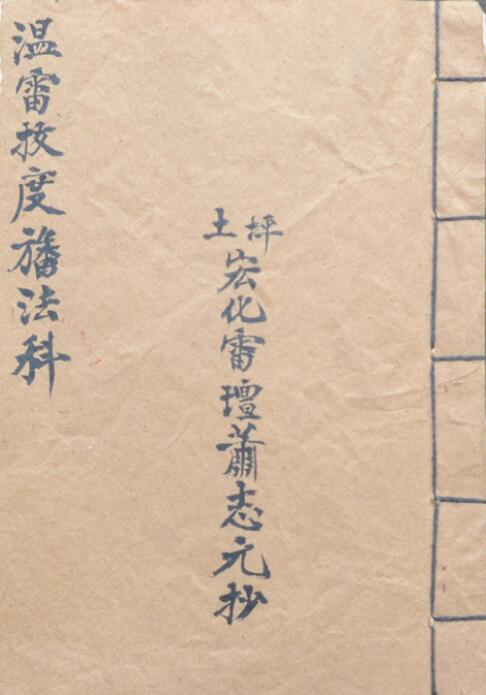 坪土
宏化雷壇蕭志元抄
温雷拔度旛法科